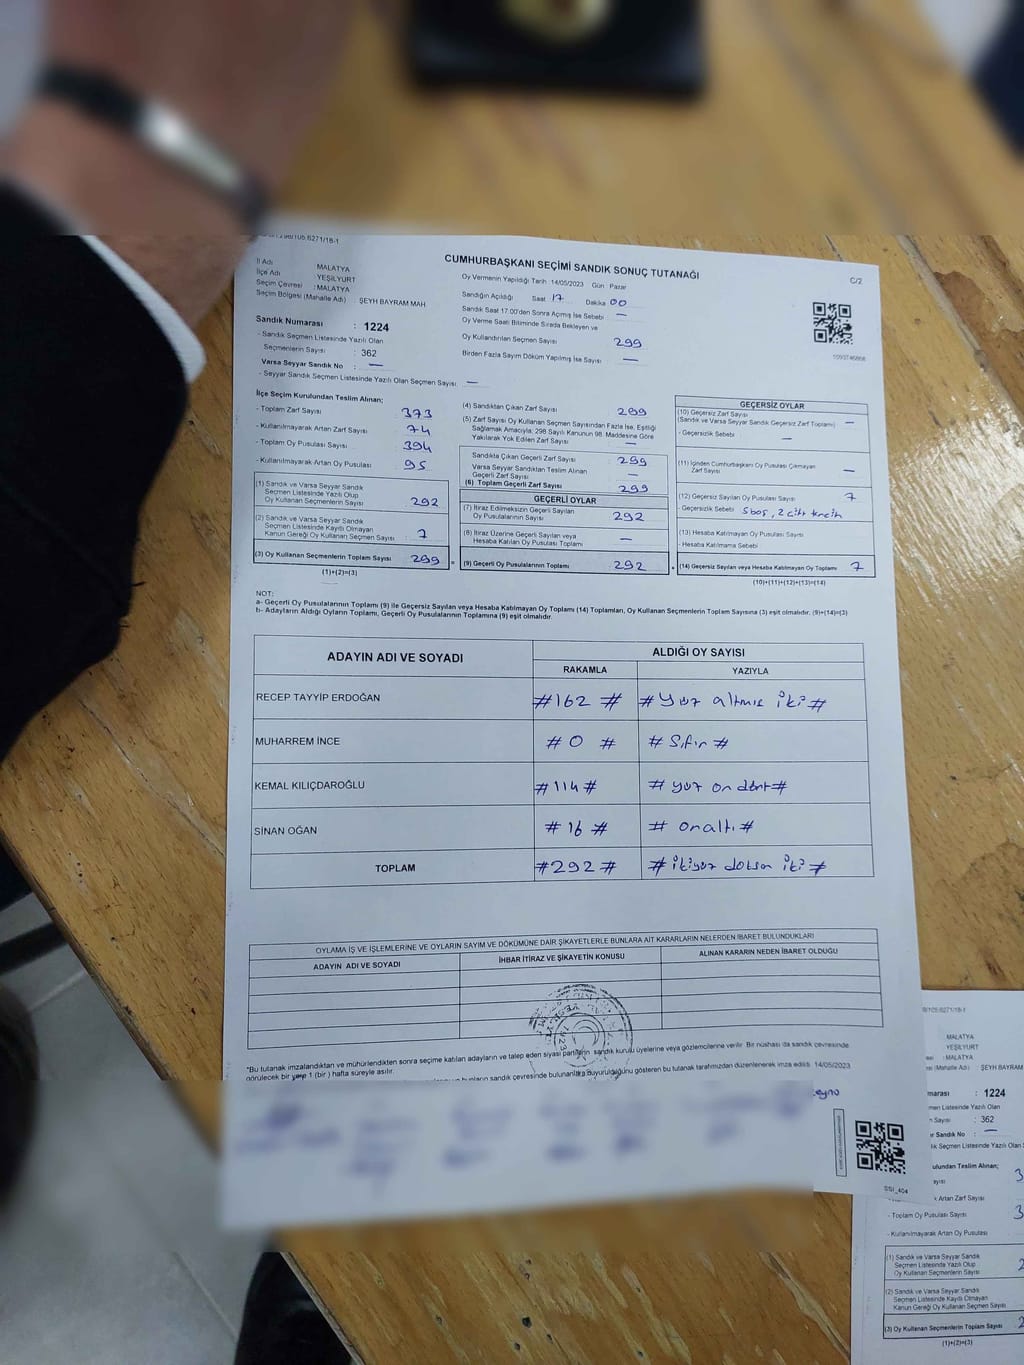 CUMHURBAŞKANI SEÇİMİ SANDIK SONUÇ TUTANAĞI
C/2
İl Adı MALATYA
İlçe Adı YEŞİLYURT
Seçim Çevresi : MALATYA
Seçim Bölgesi (Mahalle Adı) : ŞEYH BAYRAM MAH.
Sandık Numarası : 1224
- Sandık Seçmen Listesinde Yazılı Olan
Seçmenlerin Sayısı : 362
Varsa Seyyar Sandık No : —
- Seyyar Sandık Seçmen Listesinde Yazılı Olan Seçmen Sayısı: —
Oy Vermenin Yapıldığı Tarih 14/05/2023 Gün Pazar
Sandığın Açıldığı Saat 17 Dakika 00
Sandık Saat 17:00'den Sonra Açılmış İse Sebebi —
Oy Verme Saati Bitiminde Sırada Bekleyen ve
Oy Kullandırılan Seçmen Sayısı 299
Birden Fazla Sayım Döküm Yapılmış İse Sayısı —
İlçe Seçim Kurulundan Teslim Alınan;
- Toplam Zarf Sayısı 373
- Kullanılmayarak Artan Zarf Sayısı 74
- Toplam Oy Pusulası Sayısı 394
- Kullanılmayarak Artan Oy Pusulası 95
(1) Sandık ve Varsa Seyyar Sandık
Seçmen Listesinde Yazılı Olup
Oy Kullanan Seçmenlerin Sayısı 292
(2) Sandık ve Varsa Seyyar Sandık
Seçmen Listesinde Kayıtlı Olmayan
Kanun Gereği Oy Kullanan Seçmen Sayısı 7
(3) Oy Kullanan Seçmenlerin Toplam Sayısı 299
(1)+(2)=(3)
(4) Sandıktan Çıkan Zarf Sayısı 299
(5) Zarf Sayısı Oy Kullanan Seçmen Sayısından Fazla İse, Eşitliği
Sağlamak Amacıyla; 298 Sayılı Kanunun 98. Maddesine Göre
Yakılarak Yok Edilen Zarf Sayısı —
Sandıkta Çıkan Geçerli Zarf Sayısı 299
Varsa Seyyar Sandıktan Teslim Alınan
Geçerli Zarf Sayısı —
(6) Toplam Geçerli Zarf Sayısı 299
GEÇERLİ OYLAR
(7) İtiraz Edilmeksizin Geçerli Sayılan
Oy Pusulalarının Sayısı 292
(8) İtiraz Üzerine Geçerli Sayılan veya
Hesaba Katılan Oy Pusulası Toplamı —
(9) Geçerli Oy Pusulalarının Toplamı 292
GEÇERSİZ OYLAR
(10) Geçersiz Zarf Sayısı
(Sandık ve Varsa Seyyar Sandık Geçersiz Zarf Toplamı) —
- Geçersizlik Sebebi —
(11) İçinden Cumhurbaşkanı Oy Pusulası Çıkmayan
Zarf Sayısı —
(12) Geçersiz Sayılan Oy Pusulası Sayısı 7
- Geçersizlik Sebebi 5 boş, 2 çift tercih
(13) Hesaba Katılmayan Oy Pusulası Sayısı
- Hesaba Katılmama Sebebi
(14) Geçersiz Sayılan veya Hesaba Katılmayan Oy Toplamı 7
(10)+(11)+(12)+(13)=(14)
NOT:
a- Geçerli Oy Pusulalarının Toplamı (9) ile Geçersiz Sayılan veya Hesaba Katılmayan Oy Toplamı (14) Toplamları, Oy Kullanan Seçmenlerin Toplam Sayısına (3) eşit olmalıdır. (9)+(14)=(3)
b- Adayların Aldığı Oyların Toplamı, Geçerli Oy Pusulalarının Toplamına (9) eşit olmalıdır.
ADAYIN ADI VE SOYADI ALDIĞI OY SAYISI
RAKAMLA YAZIYLA
RECEP TAYYİP ERDOĞAN #162 # #Yüz altmış iki#
MUHARREM İNCE # 0 # # Sıfır #
KEMAL KILIÇDAROĞLU #114# # yüz on dört#
SİNAN OĞAN # 16 # # onaltı #
TOPLAM #292# # ikiyüz doksan iki #
OYLAMA İŞ VE İŞLEMLERİNE VE OYLARIN SAYIM VE DÖKÜMÜNE DAİR ŞİKAYETLERLE BUNLARA AİT KARARLARIN NELERDEN İBARET BULUNDUKLARI
ADAYIN ADI VE SOYADI İHBAR İTİRAZ VE ŞİKAYETİN KONUSU ALINAN KARARIN NEDEN İBARET OLDUĞU
*Bu tutanak imzalandıktan ve mühürlendikten sonra seçime katılan adayların ve talep eden siyasi partilerin sandık kurulu üyelerine veya gözlemcilerine verilir. Bir nüshası da sandık çevresinde
görülecek bir yere 1 (bir) hafta süreyle asılır.
sandık çevresinde bulunanlara duyurulduğunu gösteren bu tutanak tarafımızdan düzenlenerek imza edildi. 14/05/2023
SSI_404
MALATYA
YEŞİLYURT
: MALATYA
(Mahalle Adı) ŞEYH BAYRAM
: 1224
Listesinde Yazılı Olan
Sayısı : 362
Sandık No : —
Teslim Alınan;
Artan Zarf Sayısı
- Toplam Oy Pusulası Sayısı
- Kullanılmayarak Artan Oy Pusulası
(1) Sandık ve Varsa Seyyar Sandık
Seçmen Listesinde Yazılı Olup
Oy Kullanan Seçmenlerin Sayısı
(2) Sandık ve Varsa Seyyar Sandık
Seçmen Listesinde Kayıtlı Olmayan
Kanun Gereği Oy Kullanan Seçmen Sayısı
(3) Oy Kullanan Seçmenlerin Toplam Sayısı
(1)+(2)=(3)